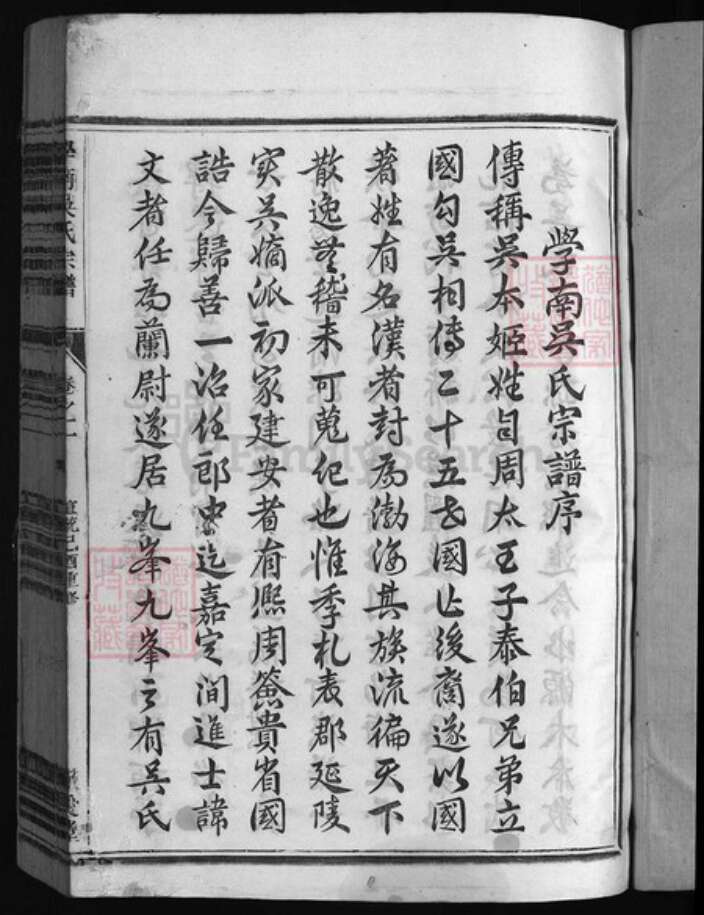 學南吳氏宗譜序
傳稱吳本姬姓自周太王子泰伯兄弟立
國勾吳相傳二十五世國亡後裔遂以國
著姓有名漢者封為渤海其族流徧天下
散逸無稽未可蒐紀也惟季札表郡延陵
實吳嫡派初家建安者有熙周簽貴省國
誥令歸善一治任郎中迄嘉定間進士諱
文者任為蘭尉遂居九峯九峯之有吳氏
學南吳氏宗譜
卷之一
宣統己酉重修
FamilySearch